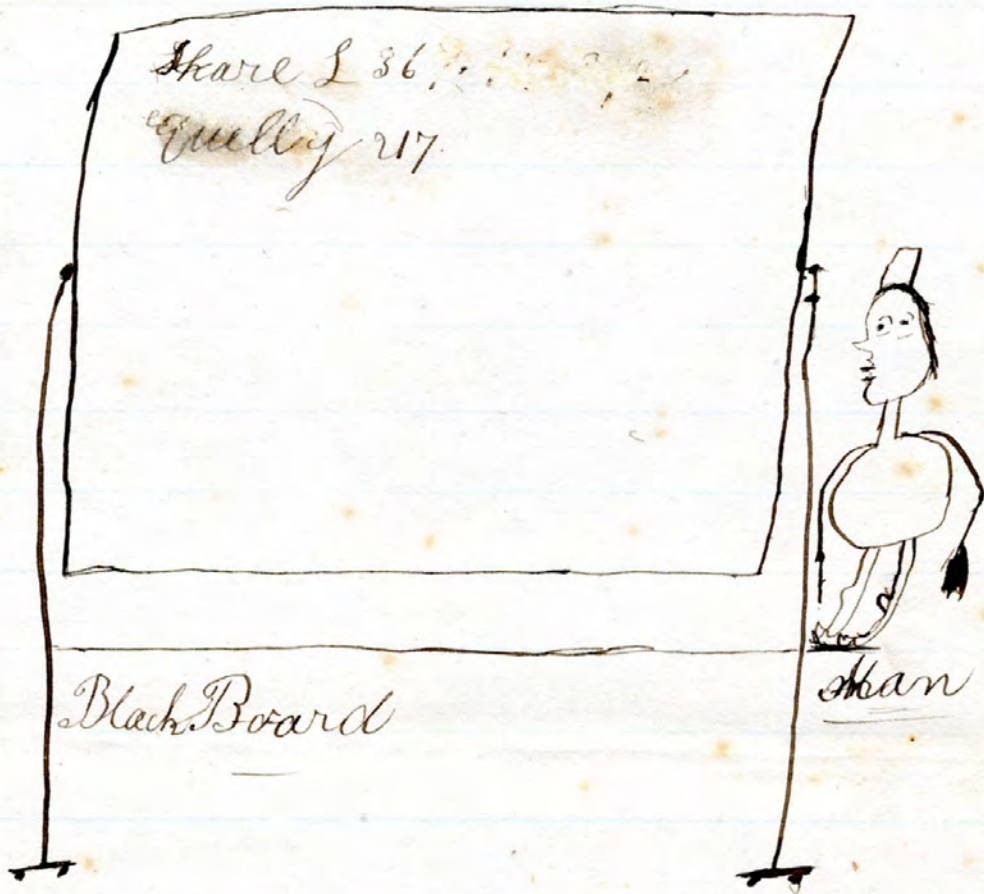 Share £ 36
Equelly 217.
Black Board
Man